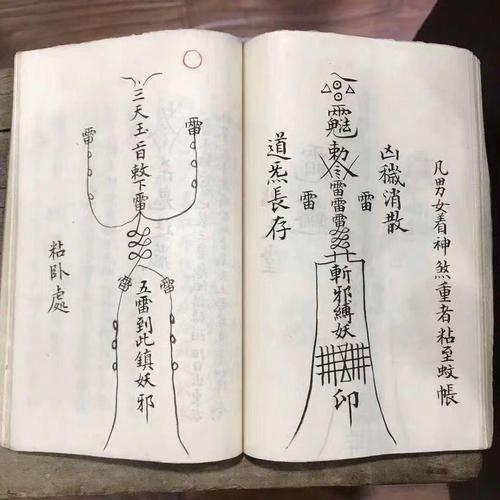 凡男女着神煞重者粘至蚊帳
凶穢消散
雷
勅令
雷雷雷
斬邪縛妖
印
雷
道炁長存
雷
三天玉旨敕下雷
五雷到此鎮妖邪
雷
粘卧處